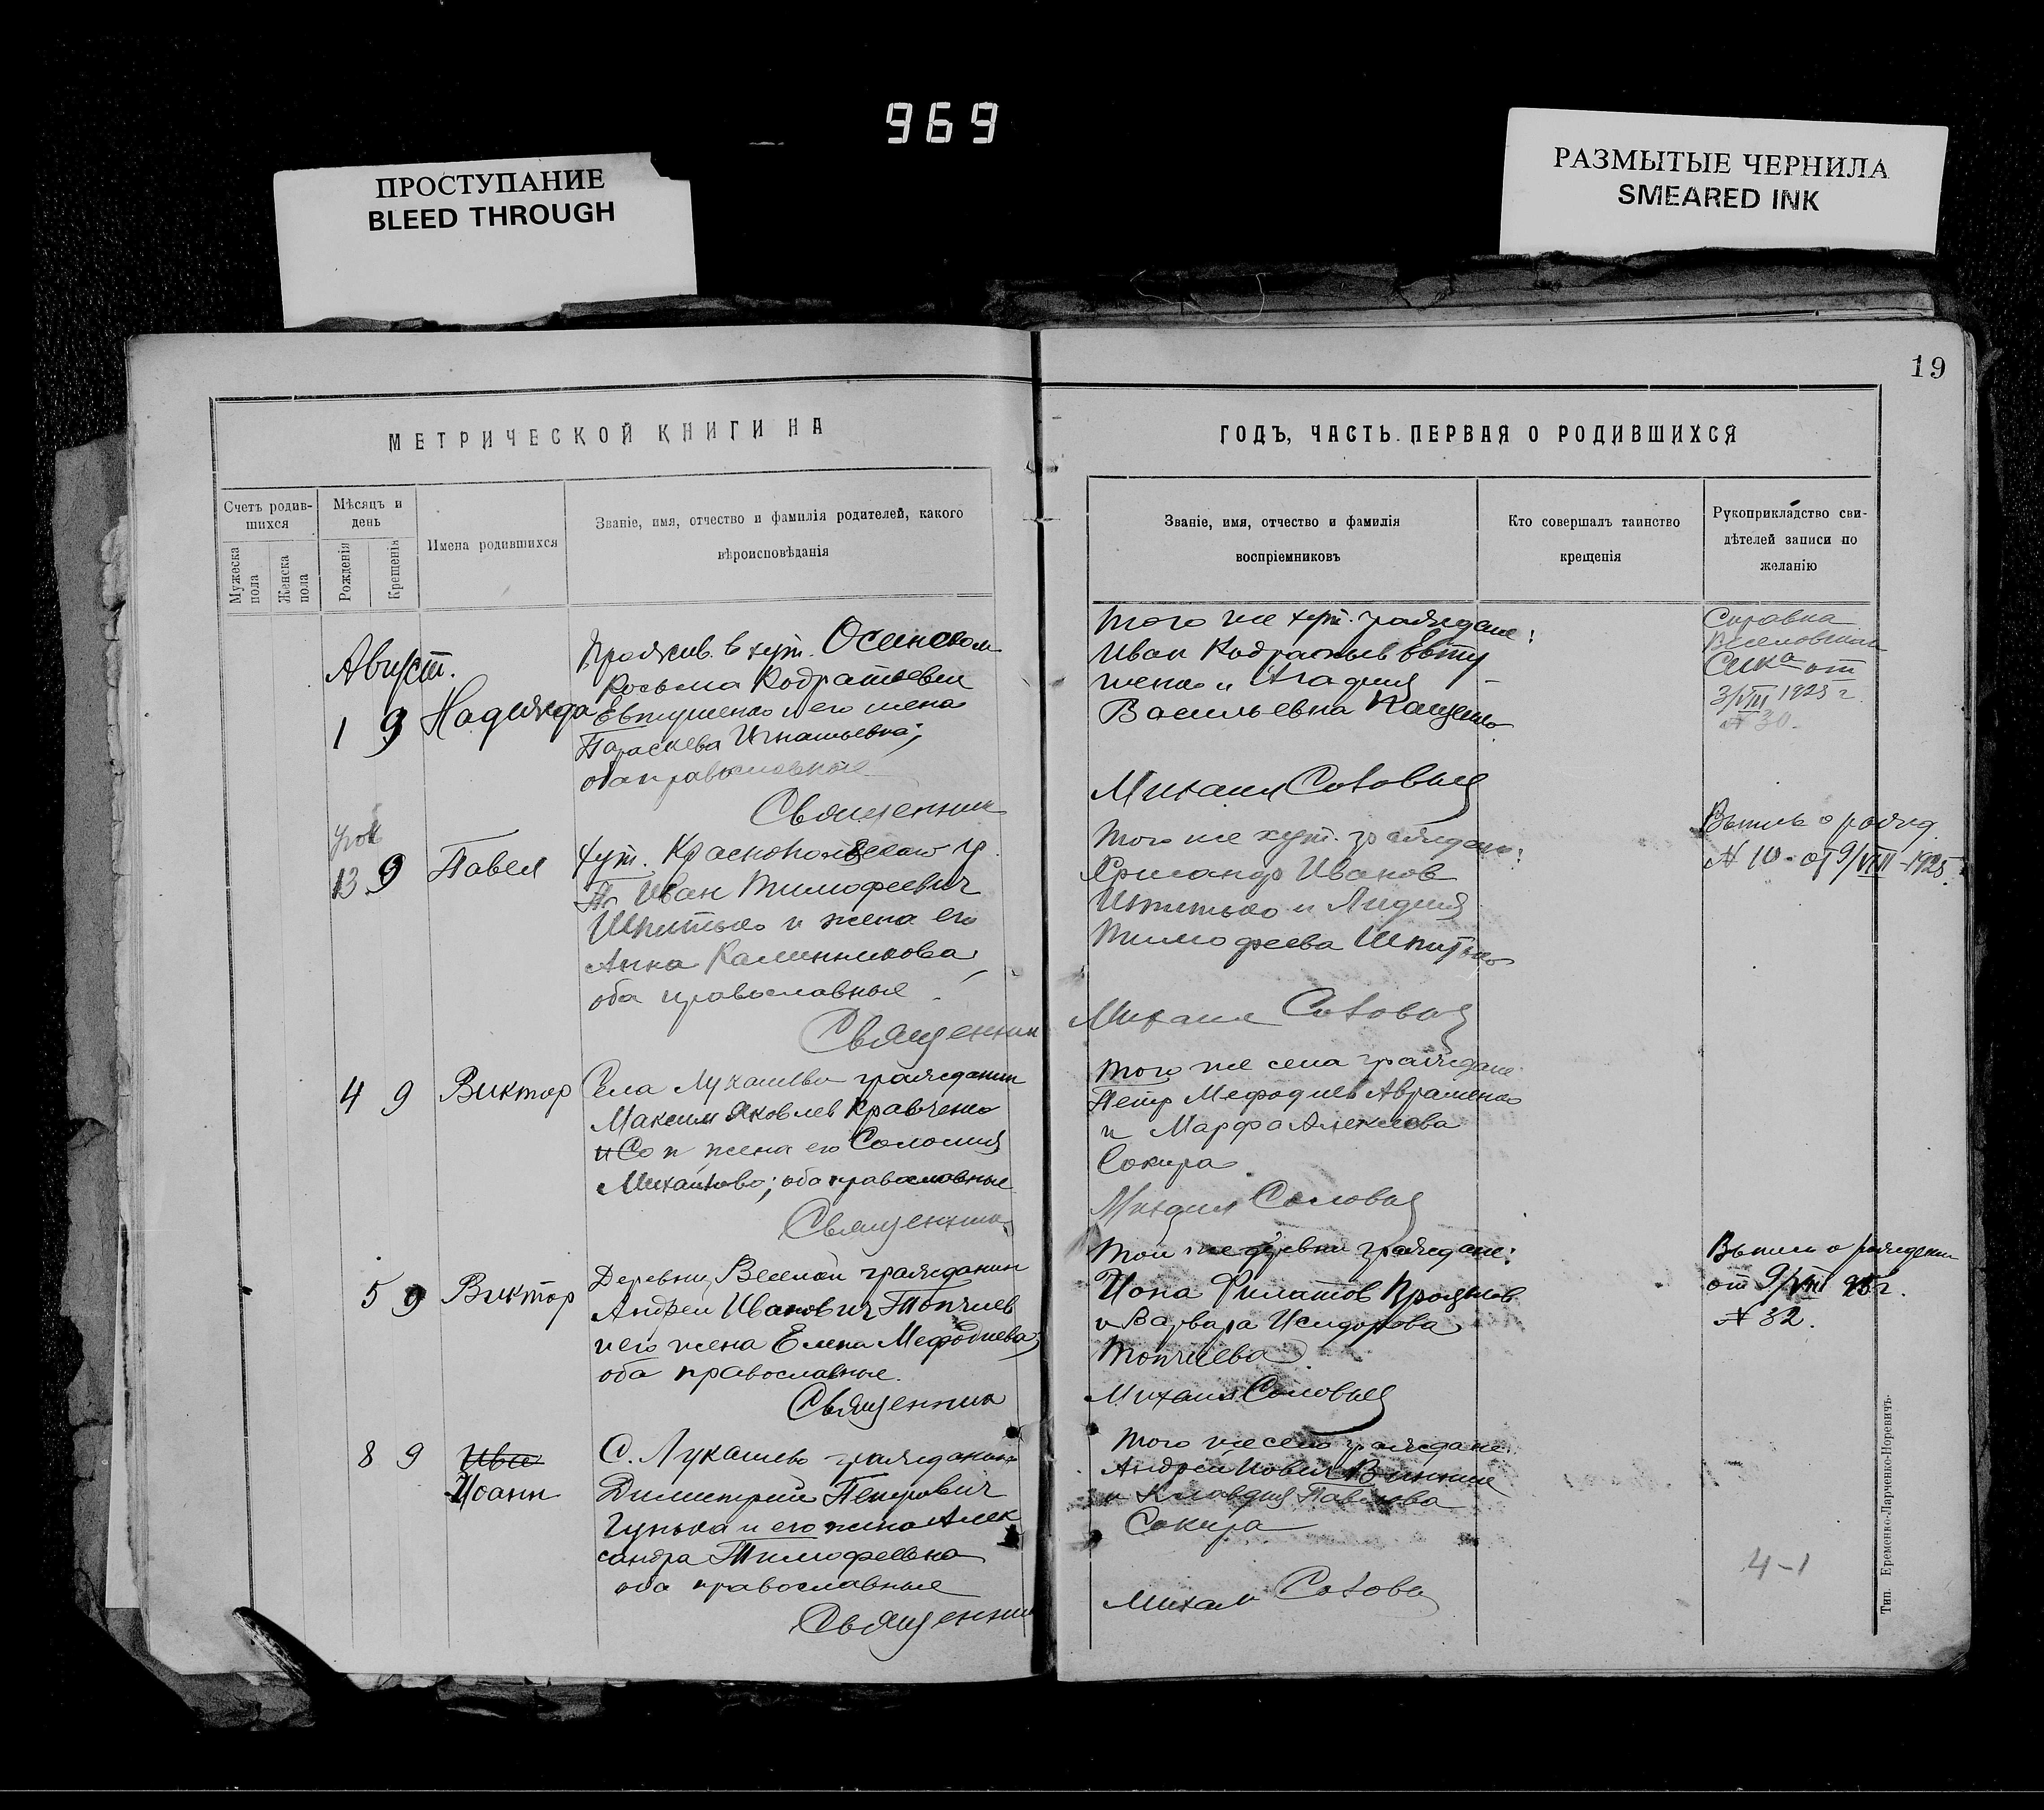 969
ПРОСТУПАНИЕ
BLEED THROUGH
РАЗМЫТЫЕ ЧЕРНИЛА
SMEARED INK
19
МЕТРИЧЕСКОЙ КНИГИ НА
Счетъ родив-
шихся
Мѣсяцъ и
день
Мужеска
пола
Женска
пола
Рожденія
Крещенія
Имена родившихся
Званіе, имя, отчество и фамилія родителей, какого
вѣроисповѣданія
ГОДЪ, ЧАСТЬ ПЕРВАЯ О РОДИВШИХСЯ
Званіе, имя, отчество и фамилія
воспріемниковъ
Кто совершалъ таинство
крещенія
Рукоприкладство сви-
дѣтелей записи по
желанію
Август.
1 9 Надежда
Прожив. в хут. Осинском
Косьма Кодратьевич
Евтушенко и его жена
Параскева Игнатьевна;
оба православные
Священник
того же хут. граждане:
Иван Кодратьев Евту
шенко и
Васильевна
Михаил Соловьев
Справка
от
3/VIII 1925 г
№ 30.
13 9 Павел
хут. Краснопольского гр.
Иван Тимофеевич
Шпитько и жена его
Анна Калинникова
оба православные
Священник
того же хут. граждане:
Иванов
Шпитько и Лидия
Тимофеева Шпитько
Михаил Соловьев
Выпись о рожд.
№ 10 от 9/VIII-1925.
4 9 Виктор
Села Лукашево гражданин
Максим Яковлев Кравченко
и Со и жена его Соломия
Михайлова; оба православные
Священник
того же села граждане
Петр Мефодиев Авраменко
и Марфа Алексеева
Сокира
Михаил Соловьев
5 9 Виктор
Деревни Веселой гражданин
Андрей Иванович Топчиев
и его жена Елена Мефодиева;
оба православные.
Священник
Той же деревни граждане:
Иона Филатов
и Варвара Исидорова
Топчиева.
Михаил Соловьев
Выпись о рождении
от 9/VIII 25 г.
№ 32.
8 9 Ива
Иоанн
С. Лукашево гражданин
Димитрий Петрович
Гунька и его жена Алек
сандра Тимофеевна
оба православные
Священник
Того же села граждане:
Андрей
и Клавдия Павлова
Сокира
Михаил Соловьев
4-1
Тип. Еременко-Ларченко-Норевичъ.